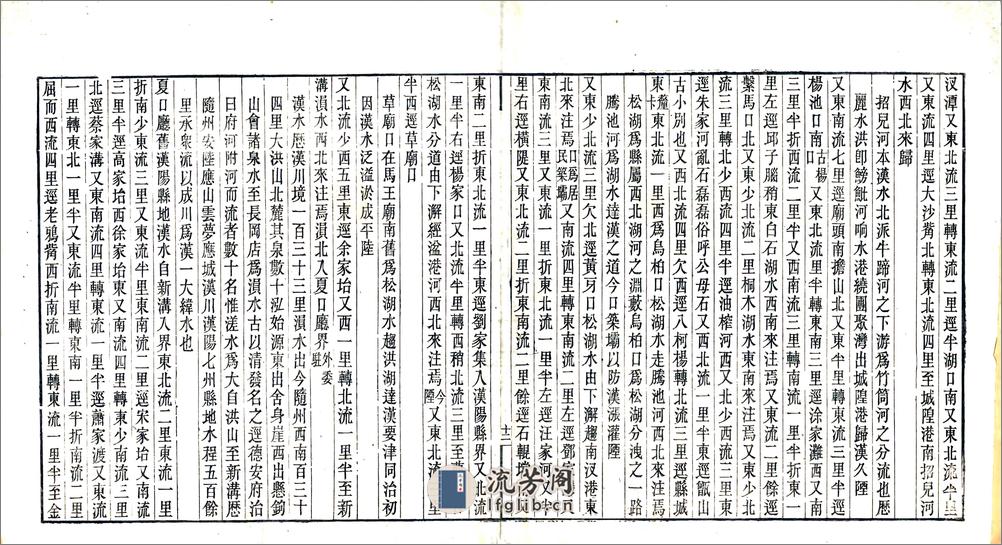 汊潭又東北流三里轉東流二里逕半湖口南又東北流半里
又東流四里逕大沙觜北轉東北流四里至城隍港南招兒河
水西北來歸
招兒河本漢水北派牛蹄河之下游爲竹筒河之分流也歷
麗水洪卽鲂魮河响水港繞團聚灣出城隍港歸漢久陻
又東南流七里逕廟頭南擔山北又東半里轉東南一里半逕
楊池口南古楊口又東北流半里轉東南三里逕徐家灘西又南
三里半折西流二里又西南流三里轉東南流一里半折東一
里左逕邱子腦稍東白石湖水西南來注焉又南流二里逕
繫馬口北又東少北流二里桐木湖水東南來注焉又東少北
流三里轉北少西流四里半逕油榨河西又北少西流二里
逕朱家河亂石磊磊俗呼公母石又西北流一里半東逕甑山
古小别也又西北流四里欠西逕八柯楊轉北流一里逕縣城
東釐卡東北流一里西爲烏柏口松湖水走騰池河西北來注焉
松湖爲縣屬西北湖河之淵藪烏柏口其北湖分洩之一路
騰池河爲湖水達漢之道今口築壩以防漢漲灌陻
又東少北流三里欠北逕黃牙口松湖水由下澥趨南汊港東
北來注焉口爲居民築壩又東南流四里轉東南流二里左逕鄧家
東南流一里折東北流一里半左逕汪家河又東
里右逕橫隄又東北流二里折東南流二里餘逕石輥壋
東南二里折東北流一里半東逕劉家集入漢陽縣界又北流
一里半右逕楊家口又北流半里轉西稍北流三里至
松湖水分道由下澥經溢港河西北來注焉今陻又東北流里
半西逕草廟口
草廟口在馬王廟南舊爲松湖水趨洪湖達漢要津同治初
因漢水泛溢淤成平陸
又北流少西五里東逕余家垴又西一里轉北流一里半至新
溝溳水西北來注焉溳北入夏口廳界外委駐
漢水歷漢川境一百三十三里溳水出今隨州西南百三十
四里大洪山北麓其泉數十泓始源東出舍身崖西出懸鉤
山會諸泉水至長岡店爲溳水古以清發名之逕德安府治
曰府河附河而流者數十名惟溠水爲大自大洪山至新溝歷
隨州安陸應山雲夢應城漢川漢陽七州縣地水程五百餘
里永衆流以成川爲漢一大緯水也
夏口廳舊漢陽縣境漢水自新溝入界東北流二里東流一里
折南少東流三里又東流半里東南流二里逕宋家垴又南流
三里半逕高家垴西徐家垴東又南流四里轉東少南流三里
北逕蔡家溝又東南流四里轉東北流二里半逕蕭家渡又東流
一里轉東北一里半又東流半里轉東南一里半折南流二里
屈而西流四里逕老鴉觜西折南流一里轉東流一里半至金
十二
流芳阁
lfglib.cn